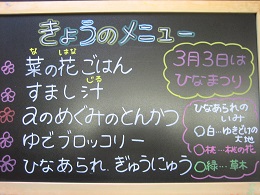 きょうのメニュー
な はな
菜の花ごはん
じる
すまし汁
aのめぐみのとんかつ
ゆでブロッコリー
ひなあられ.ぎゅうにゅう
3月3日は
ひなまつり
ひなあられの
いみ
○白…ゆきどけの
大地
○桃…桃の花
○緑…草木